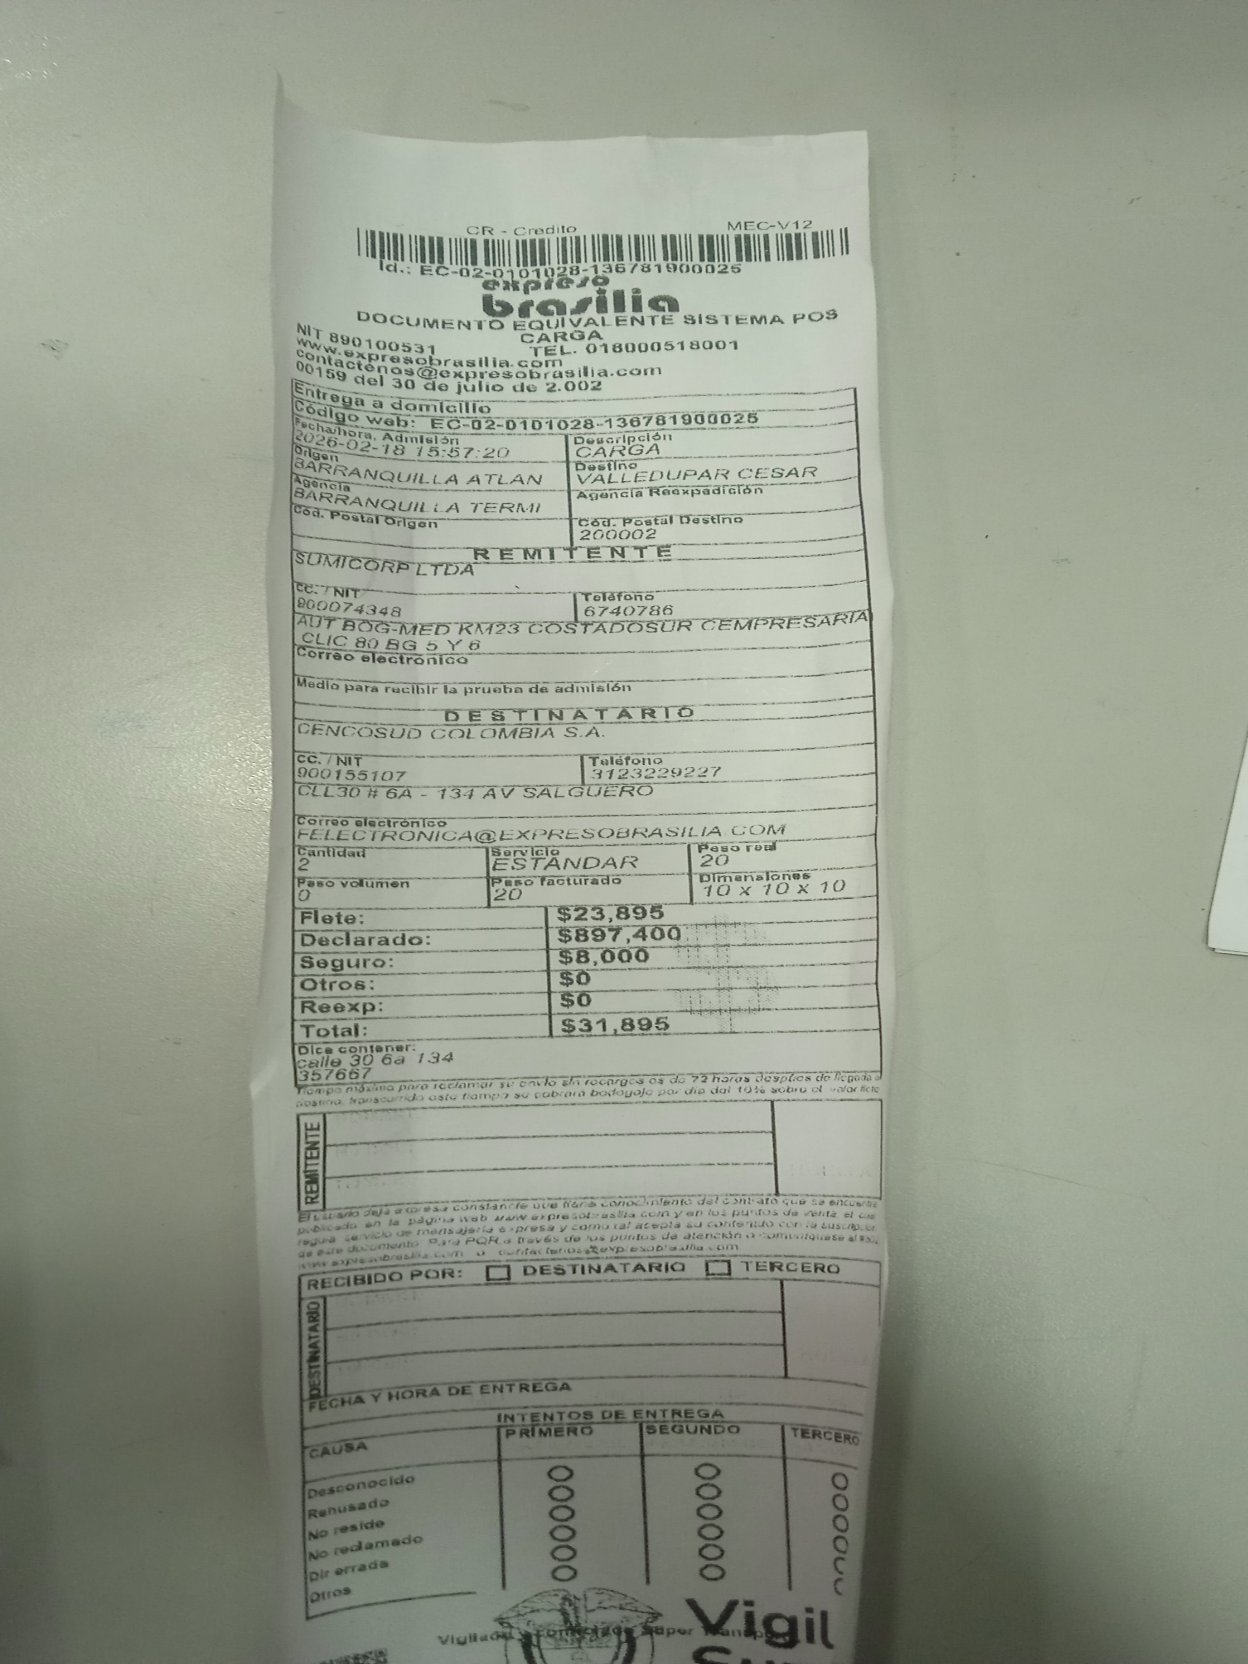 CR - Credito MEC-V12
Id.: EC-02-0101028-136781900025
expreso
brasilia
DOCUMENTO EQUIVALENTE SISTEMA POS
CARGA
NIT 890100531 TEL. 018000518001
www.expresobrasilia.com
contactenos@expresobrasilia.com
00159 del 30 de julio de 2.002
Entrega a domicilio
Código web: EC-02-0101028-136781900025
Fecha/hora, Admisión Descripción
2026-02-18 15:57:20 CARGA
Origen Destino
BARRANQUILLA ATLAN VALLEDUPAR CESAR
Agencia Agencia Reexpedición
BARRANQUILLA TERMI
Cód. Postal Origen Cód. Postal Destino
200002
REMITENTE
SUMICORP LTDA
CC. / NIT Teléfono
900074348 6740786
AUT BOG-MED KM23 COSTADOSUR CEMPRESARIA
CLIC 80 BG 5 Y 6
Correo electrónico
Medio para recibir la prueba de admisión
DESTINATARIO
CENCOSUD COLOMBIA S.A.
CC. / NIT Teléfono
900155107 3123229227
CLL30 # 6A - 134 AV SALGUERO
Correo electrónico
FELECTRONICA@EXPRESOBRASILIA.COM
Cantidad Servicio Peso real
2 ESTANDAR 20
Peso volumen Peso facturado Dimensiones
0 20 10 x 10 x 10
Flete: $23,895
Declarado: $897,400
Seguro: $8,000
Otros: $0
Reexp: $0
Total: $31,895
Dice contener:
calle 30 6a 134
357667
Tiempo máximo para reclamar su envío sin recargos es de 72 horas después de llegada a
destino, transcurrido este tiempo se cobrará bodegaje por día del 10% sobre el valor flete
REMITENTE
El usuario deja expresa constancia que tiene conocimiento del contrato que se encuentra
publicado en la página web www.expresobrasilia.com y en los puntos de venta, el cual
regula servicio de mensajería expresa y como tal acepta su contenido con la suscripción
de este documento. Para PQR a través de los puntos de atención o comuníquese al
www.expresobrasilia.com o contactenos@expresobrasilia.com
RECIBIDO POR: DESTINATARIO TERCERO
DESTINATARIO
FECHA Y HORA DE ENTREGA
INTENTOS DE ENTREGA
CAUSA PRIMERO SEGUNDO TERCERO
Desconocido
Rehusado
No reside
No reclamado
Dir errada
Otros
Vigil
Vigilado y controlado Super Transp